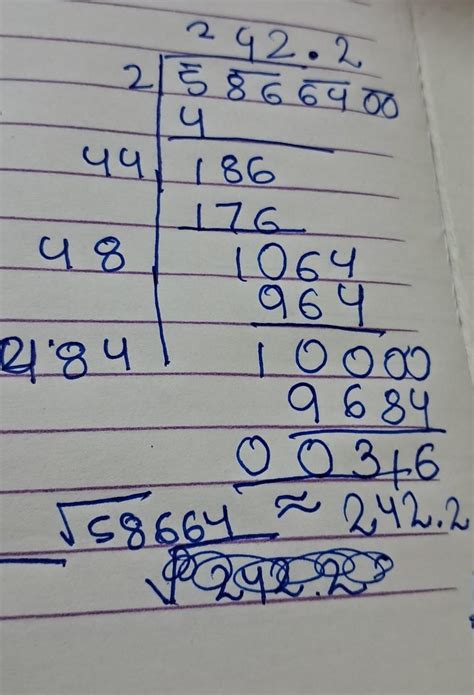 242.2
2 5 86 64 00
4
44 186
176
48 1064
964
484 10000
9684
00316
√58664 ≈ 242.2
√242.2